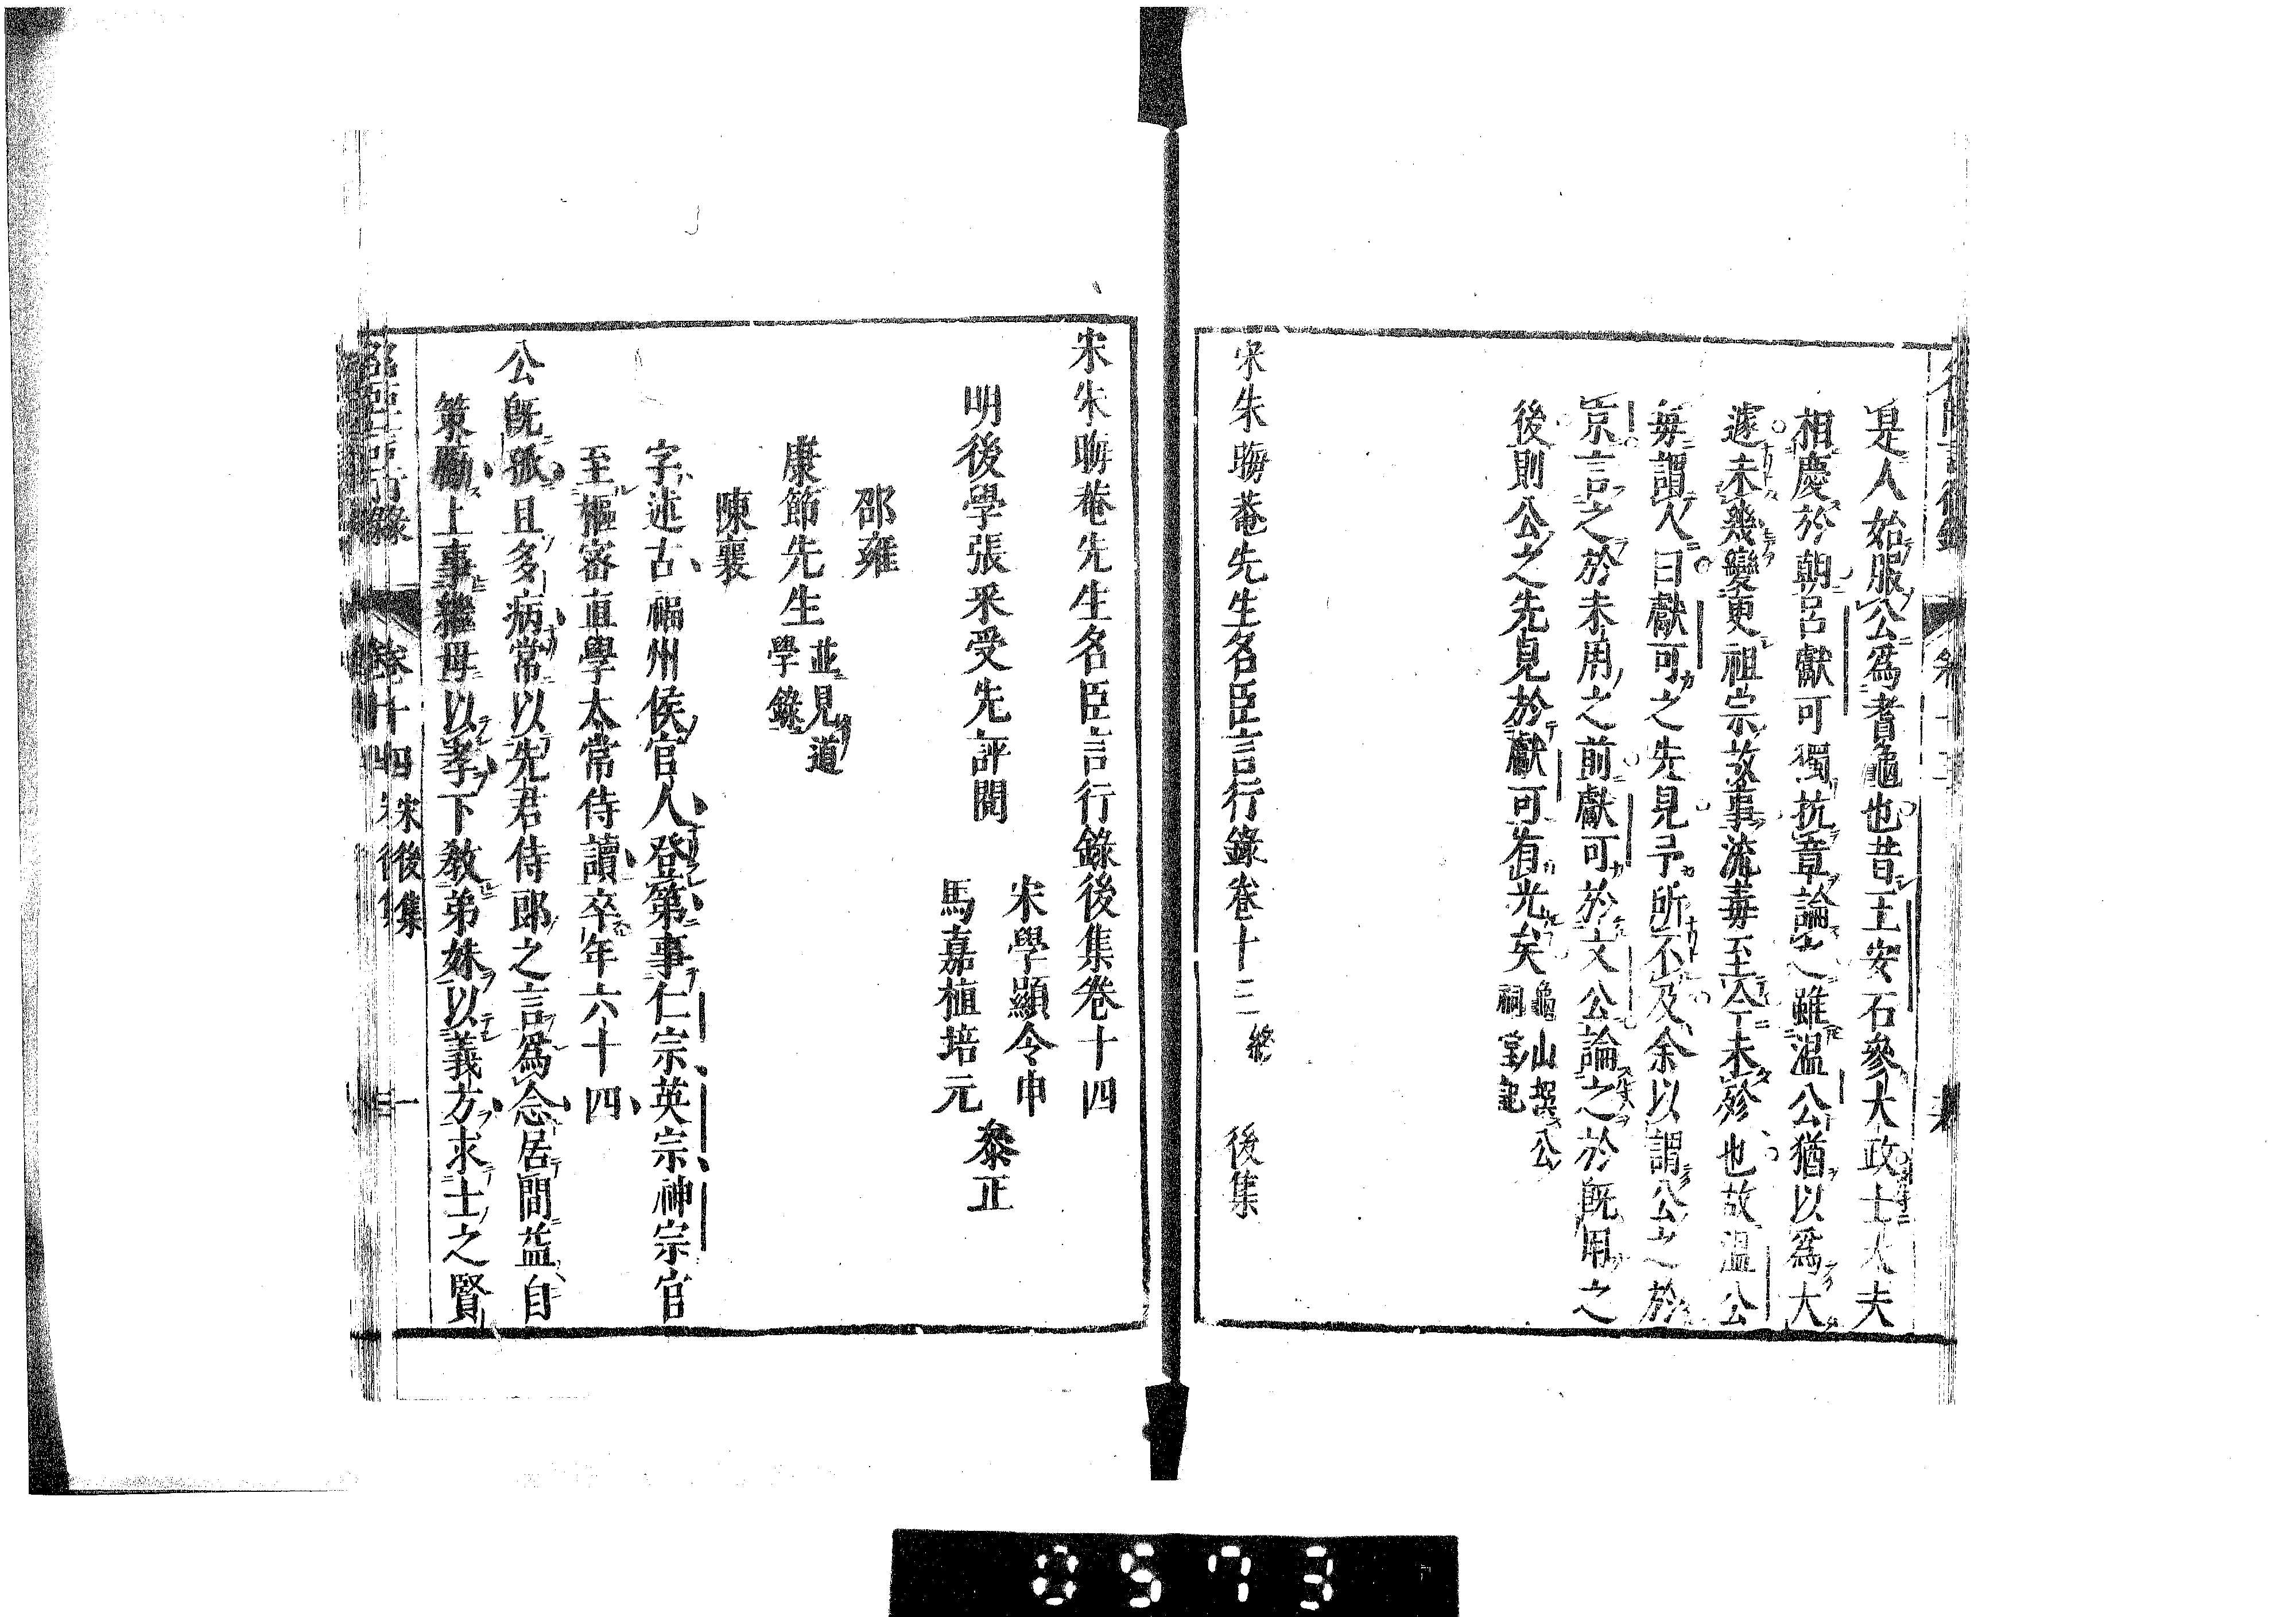 是人始服公爲耆龜也昔王安石參大政士大夫
相慶於朝呂獻可獨抗章論之雖溫公猶以爲大
遽未幾變更祖宗故事流毒至今未殄也故溫公
毎謂人曰獻可之先見予所不及余以謂公之於
京言之於未用之前獻可於文公論之於旣用之
後則公之先見於獻可有光矣龜山撰公祠堂記
宋朱晦菴先生名臣言行錄卷十三終 後集
宋朱晦菴先生名臣言行錄後集卷十四
宋學顯令申
明後學張采受先評閱 參正
馬嘉植培元
邵雍
康節先生並見道學錄
陳襄
字述古福州侯官人登第事仁宗英宗神宗官
至樞密直學太常侍讀卒年六十四
公旣孤且多病常以先君侍郎之言爲念居間益自
策勵上事繼母以孝下敎弟妹以義方求士之賢
卷十四 宋後集 一
0573